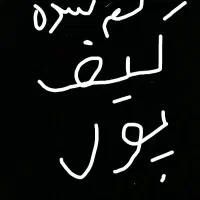 گم شده
کیف
پول